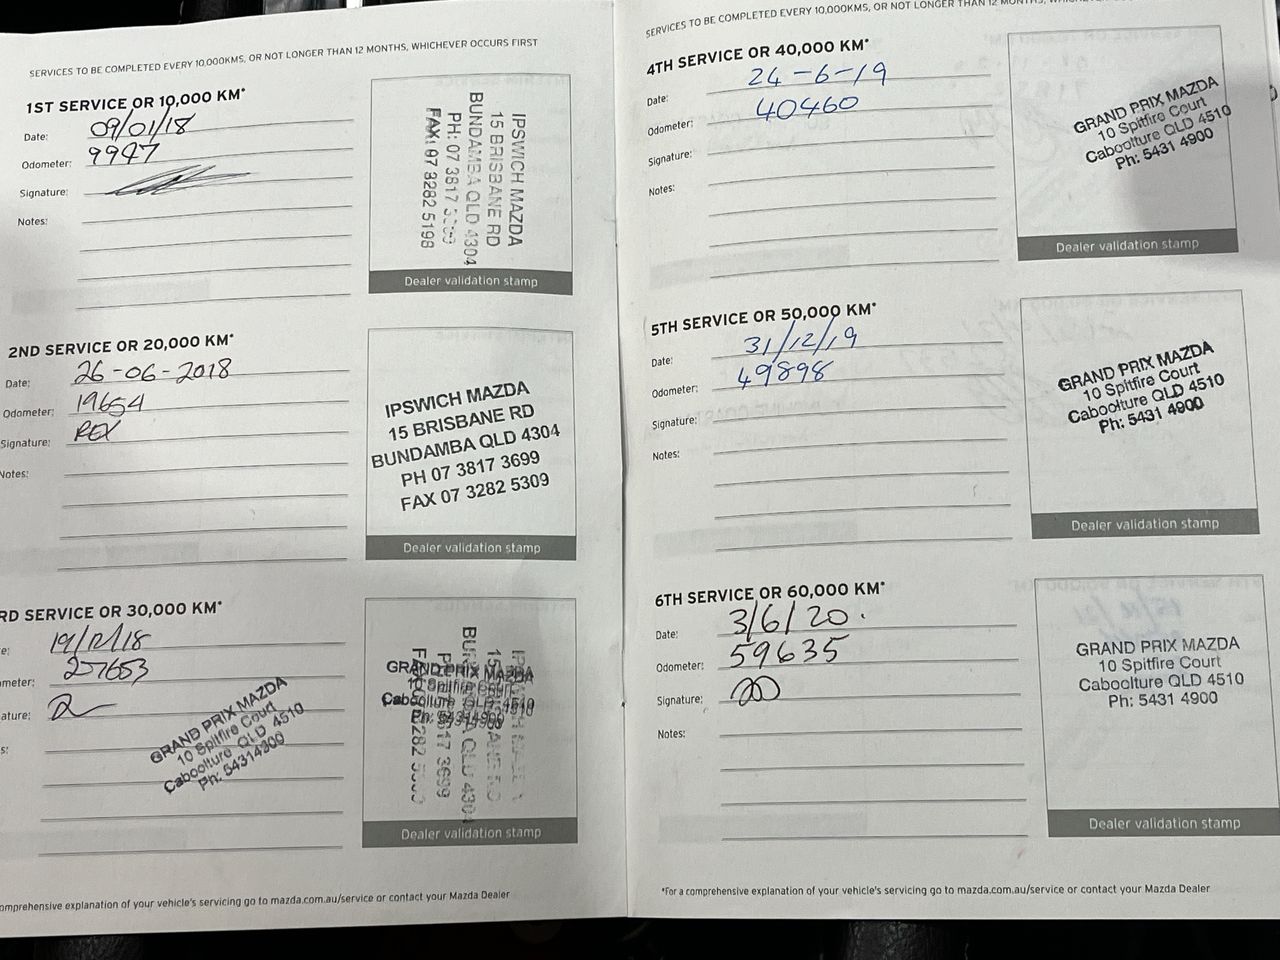 SERVICES TO BE COMPLETED EVERY 10,000KMS, OR NOT LONGER THAN 12 MONTHS, WHICHEVER OCCURS FIRST
1ST SERVICE OR 10,000 KM*
Date: 09/01/18
Odometer: 9947
Signature:
Notes:
IPSWICH MAZDA
15 BRISBANE RD
BUNDAMBA QLD 4304
PH: 07 3817
FAX: 07 3282 5198
Dealer validation stamp
2ND SERVICE OR 20,000 KM*
Date: 26-06-2018
Odometer: 19654
Signature: REX
Notes:
IPSWICH MAZDA
15 BRISBANE RD
BUNDAMBA QLD 4304
PH 07 3817 3699
FAX 07 3282 5309
Dealer validation stamp
RD SERVICE OR 30,000 KM*
e: 19/12/18
meter: 27653
ature:
s:
GRAND PRIX MAZDA
10 Spitfire Court
Caboolture QLD 4510
Ph: 54314900
GRAND PRIX MAZDA
10 Spitfire Court
Caboolture QLD 4510
Ph: 54314900
Dealer validation stamp
omprehensive explanation of your vehicle's servicing go to mazda.com.au/service or contact your Mazda Dealer
SERVICES TO BE COMPLETED EVERY 10,000KMS, OR NOT LONGER THAN 12 MONTHS,
4TH SERVICE OR 40,000 KM*
Date: 24-6-19
Odometer: 40460
Signature:
Notes:
GRAND PRIX MAZDA
10 Spitfire Court
Caboolture QLD 4510
Ph: 5431 4900
Dealer validation stamp
5TH SERVICE OR 50,000 KM*
Date: 31/12/19
Odometer: 49898
Signature:
Notes:
GRAND PRIX MAZDA
10 Spitfire Court
Caboolture QLD 4510
Ph: 5431 4900
Dealer validation stamp
6TH SERVICE OR 60,000 KM*
Date: 3/6/20.
Odometer: 59635
Signature:
Notes:
GRAND PRIX MAZDA
10 Spitfire Court
Caboolture QLD 4510
Ph: 5431 4900
Dealer validation stamp
*For a comprehensive explanation of your vehicle's servicing go to mazda.com.au/service or contact your Mazda Dealer